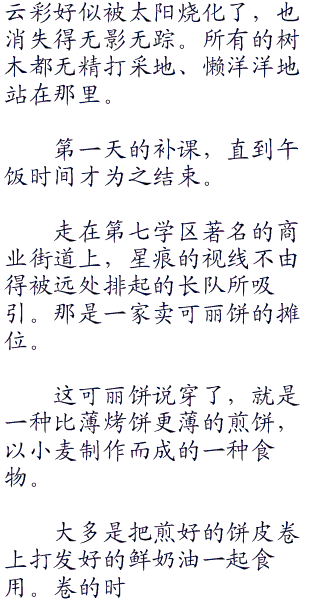 云彩好似被太阳烧化了，也
消失得无影无踪。所有的树
木都无精打采地、懒洋洋地
站在那里。
第一天的补课，直到午
饭时间才为之结束。
走在第七学区著名的商
业街道上，星痕的视线不由
得被远处排起的长队所吸
引。那是一家卖可丽饼的摊
位。
这可丽饼说穿了，就是
一种比薄烤饼更薄的煎饼，
以小麦制作而成的一种食
物。
大多是把煎好的饼皮卷
上打发好的鲜奶油一起食
用。卷的时